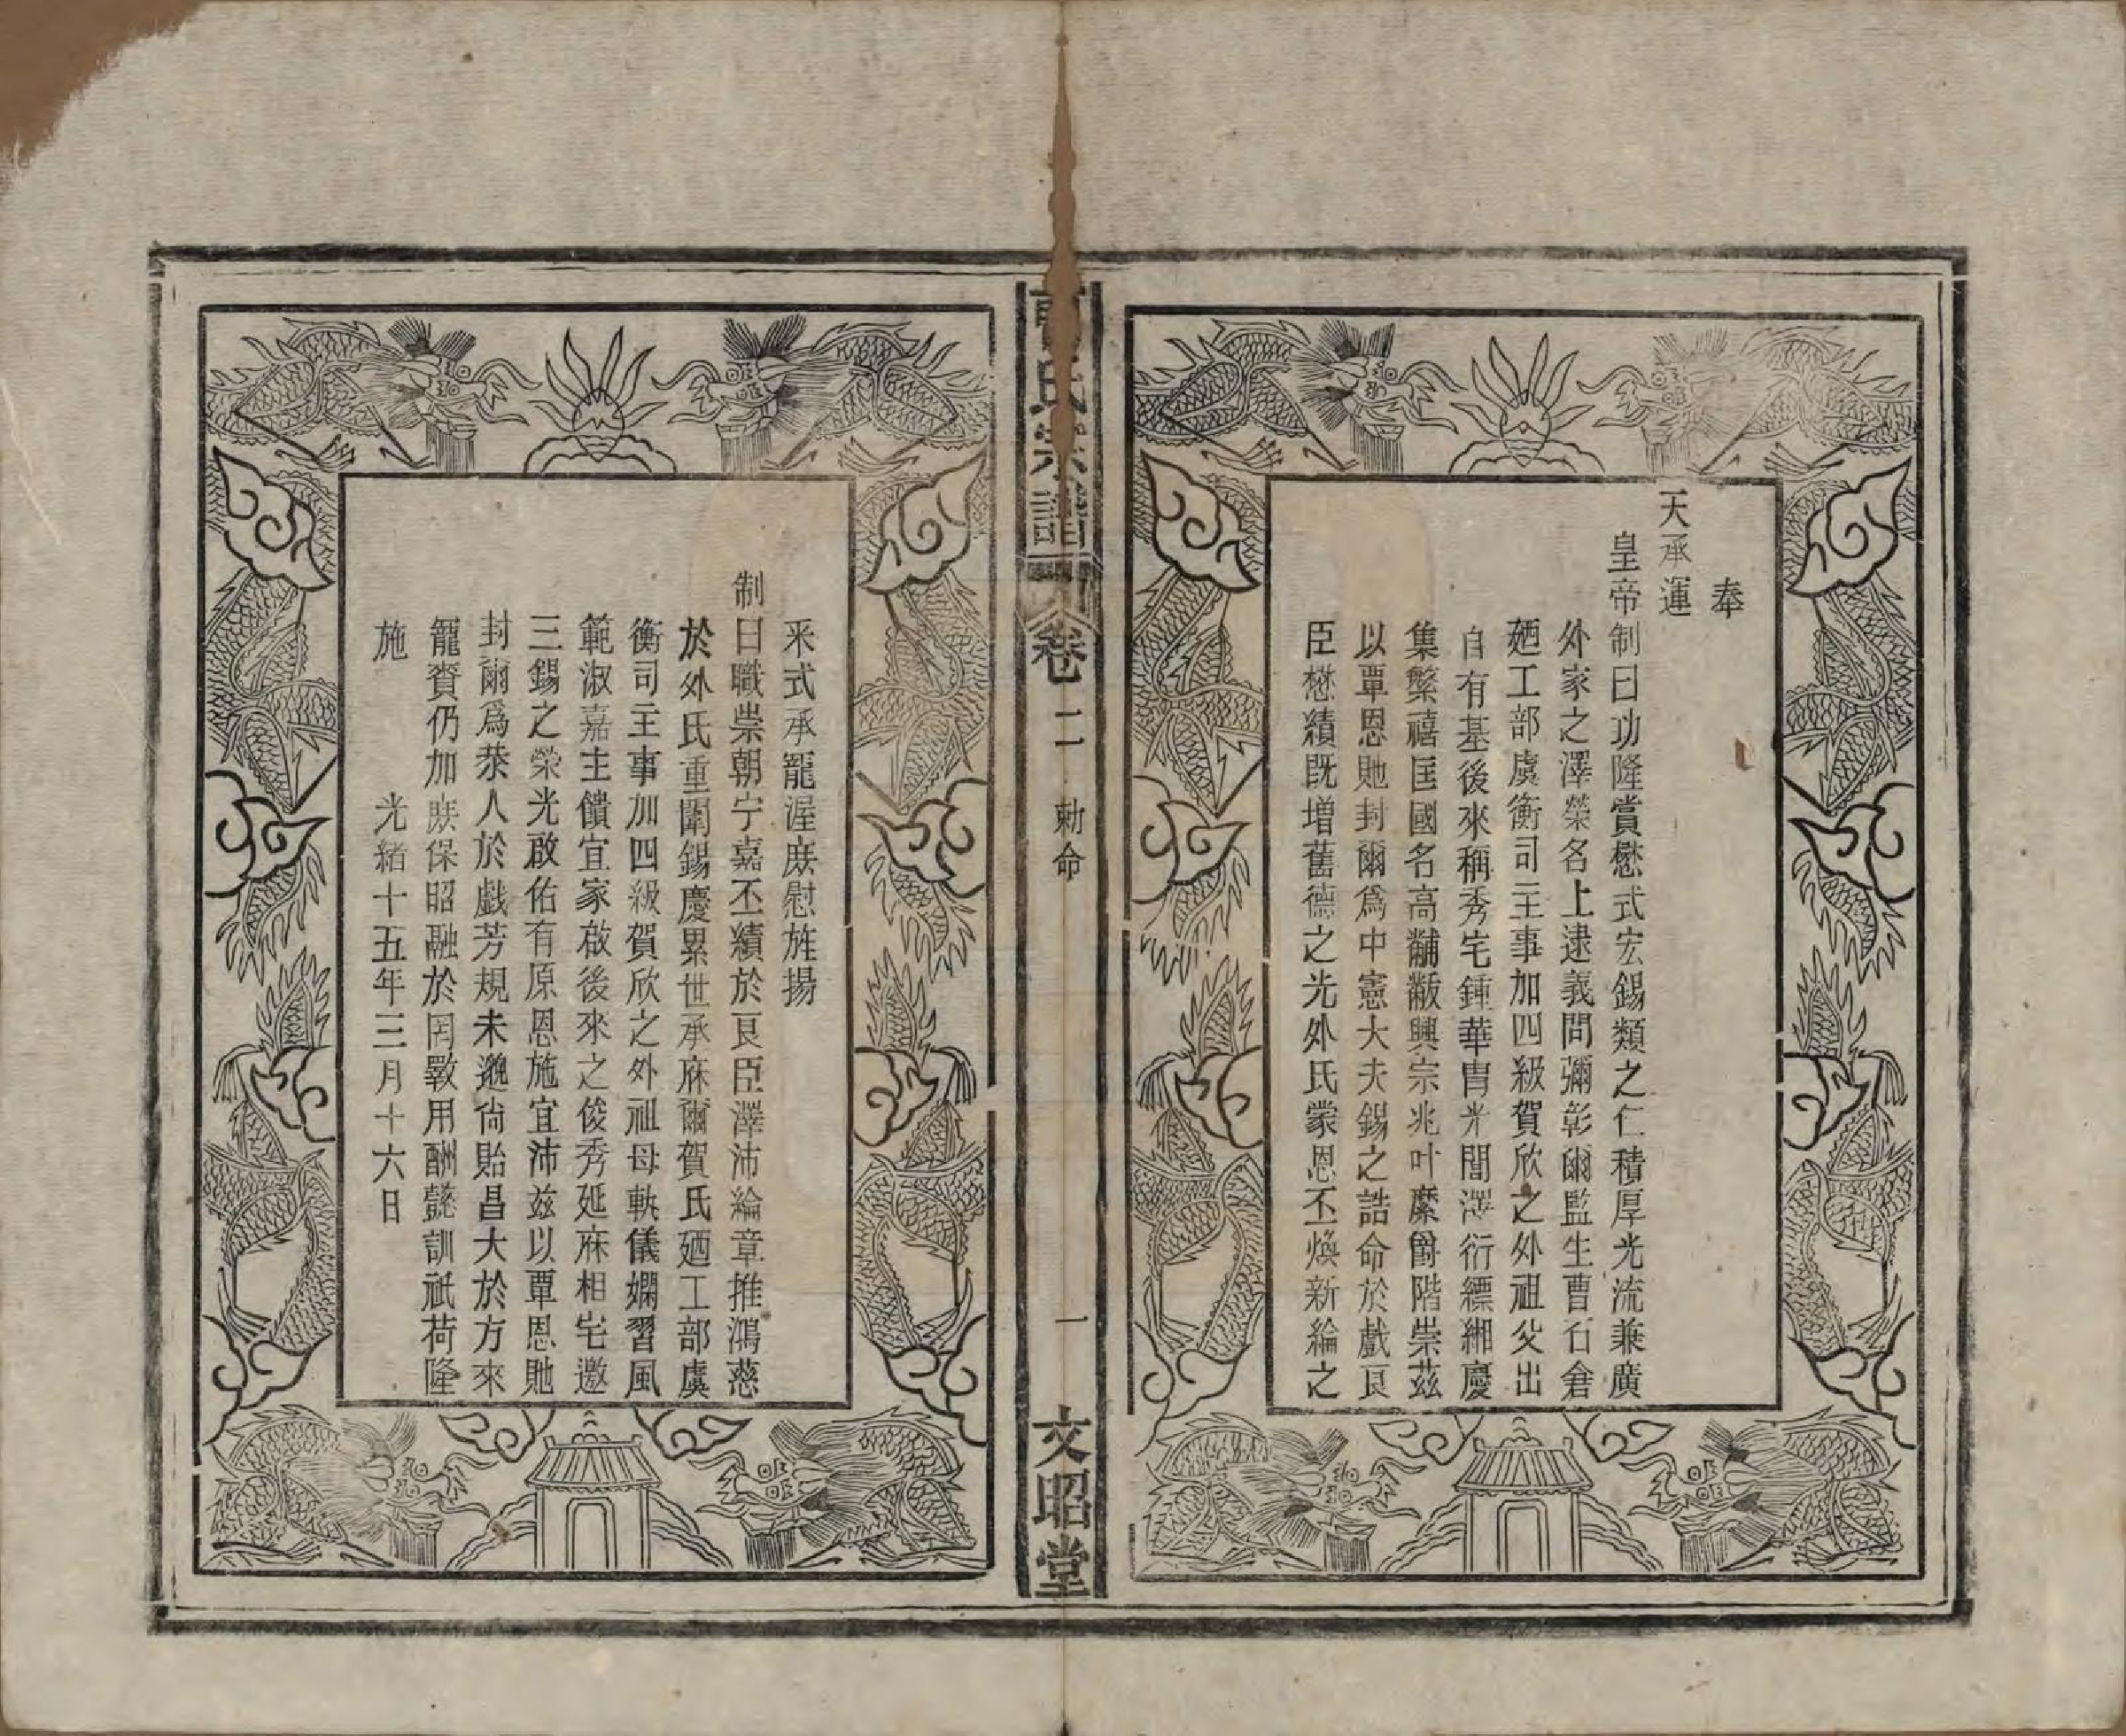 奉
天承運
皇帝制曰功隆賞懋式宏錫類之仁積厚光流兼廣
外家之澤榮名上逮義問彌彰爾監生曹石倉
廼工部虞衡司主事加四級賀欣之外祖父出
自有基後來稱秀宅鍾華胄光間澤衍縹緗慶
集繁禧匡國名高黼黻興宗兆叶縻爵階崇茲
以覃恩貤封爾爲中憲大夫錫之誥命於戲良
臣懋績既增舊德之光外氏蒙恩丕煥新綸之
氏宗譜 卷二 勅命 一 文昭堂
采式承寵渥庶慰旌揚
制曰職崇朝宁嘉丕績於良臣澤沛綸章推鴻慈
於外氏重闈錫慶累世承庥爾賀氏廼工部虞
衡司主事加四級賀欣之外祖母軌儀嫻習風
範淑嘉主饋宜家啟後來之俊秀延庥相宅邀
三錫之榮光啟佑有原恩施宜沛茲以覃恩貤
封爾爲恭人於戲芳規未邈尙貽昌大於方來
寵賚仍加庶保昭融於罔斁用酬懿訓祇荷隆
施 光緒十五年三月十六日